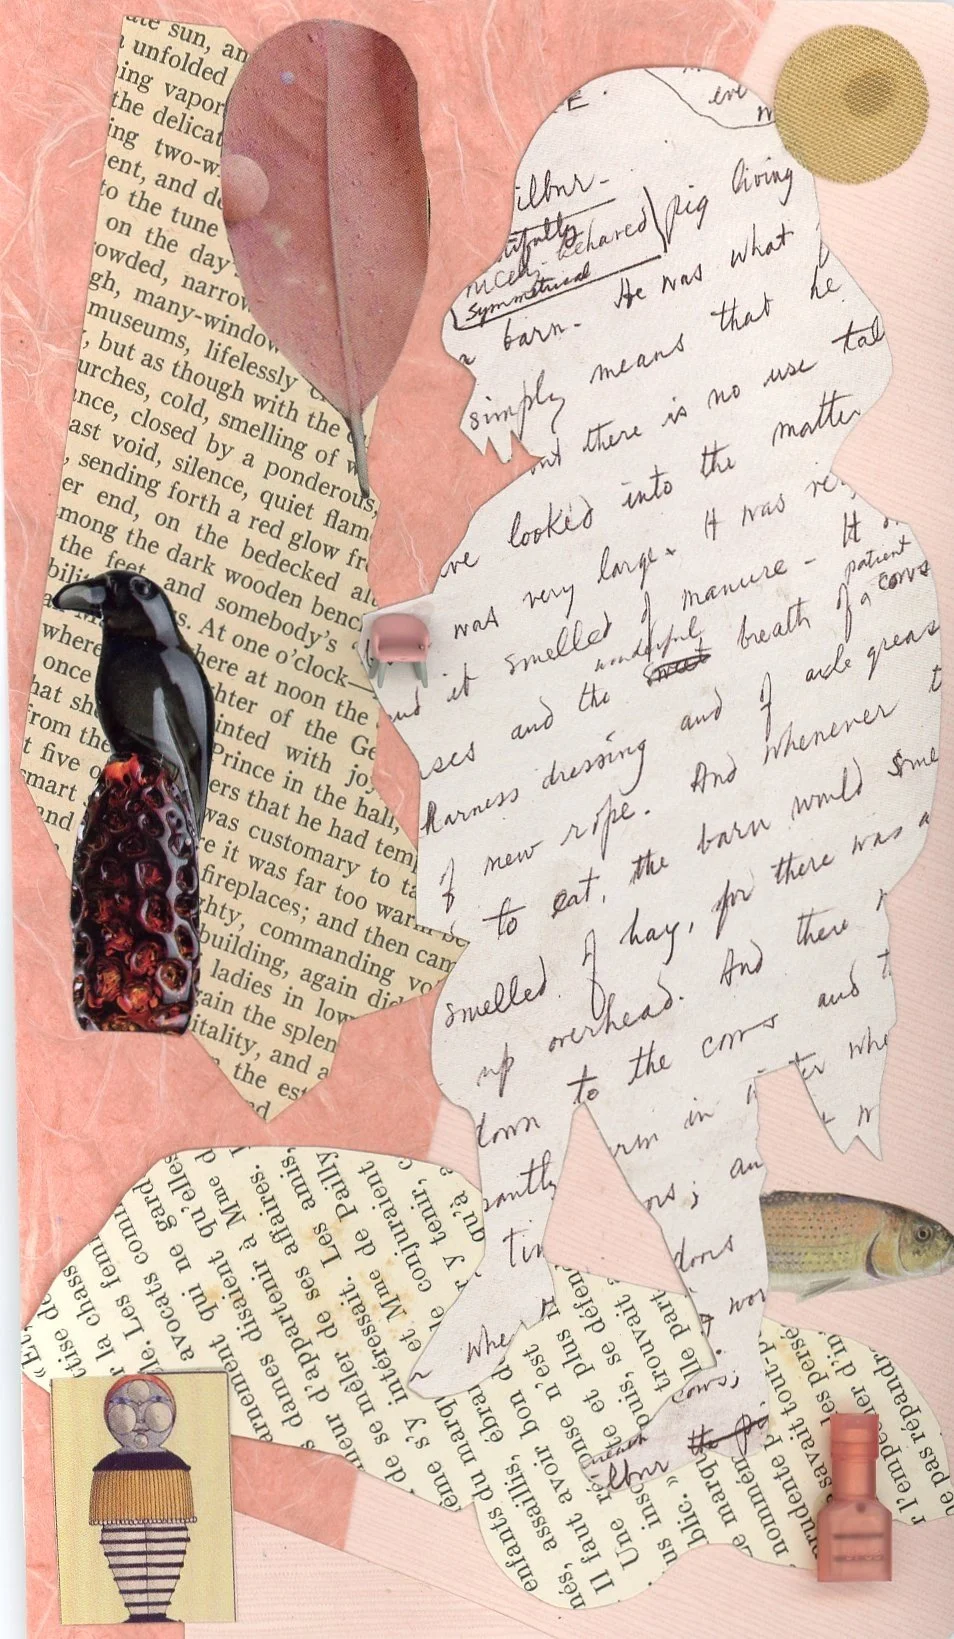 ate sun, an
unfolded
ing vapor
the delicat
ing two-w
ent, and de
to the tune
on the day
owded, narrow
gh, many-window
museums, lifelessly c
, but as though with the
urches, cold, smelling of w
nce, closed by a ponderous,
ast void, silence, quiet flam
, sending forth a red glow fr
er end, on the bedecked alt
mong the dark wooden benc
the feet, and somebody's
bili
ss. At one o'clock—
where here at noon the
once ghter of the Ge
hat sh inted with joy
from the Prince in the hall,
t five o ers that he had temp
smart was customary to ta
and e it was far too warm
fireplaces; and then cam
ghty, commanding vo
building, again did
ladies in low
gain the splen
itality, and a
the est
ed
E.
eve
ilbur-
nicely behaved pig living
Symmetrical
barn. He was what
simply means that he
but there is no use tal
ve looked into the matter
was very large. It was ve
and it smelled of manure. It
patient
wonderful
ses and the sweet breath of a cows
harness dressing and of axle greas
of new rope. And whenever t
to eat, the barn would some
smelled of hay, for there was a
up overhead. And there
down to the cows and t
rm in ter whe
santly ors; an
tin doors
whe wor
cows;
neath the pi
ilbur
« E
tise de
la chass
le. Les fem
avocats com
qui ne gard
disaient qu'elles
d'appartenir à Mme d
de se mêler de ses affaires.
s'y intéressait. Les amis,
et Mme de Pailly
le conjuraient
r y tenir, c
qu'à
enfants du marq
nés, assaillis, ébran
Il faut avoir bon d
Une réponse n'est
us ins et plus
blic. » ouis, se défen
Le marqu trouvait
nommé le part
prudente
savait tout-p
les persé
r l'empêcher d'in
pas répandr